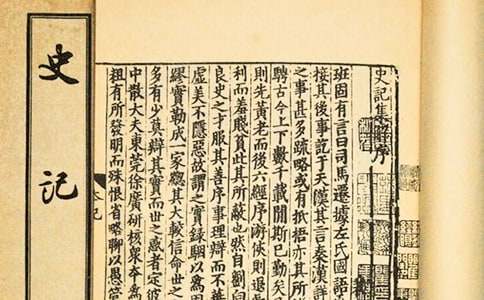 史記集解序
班固有言曰司馬遷據左氏國語
接其後事訖于天漢其言秦漢詳
之事甚多疏略或有抵捂亦其所
騁古今上下數千載間斯已勤矣
則先黃老而後六經序遊俠則退
利而羞賤貧此其所蔽也然自劉向
良史之才服其善序事理辯而不華
虛美不隱惡故謂之實錄駰以為固
繆實勒成一家緫其大較信命世之
多有少莫辯其實而世之惑者定彼
中散大夫東莞徐廣研核衆本為
粗有所發明而殊恨省略聊以愚管
史記